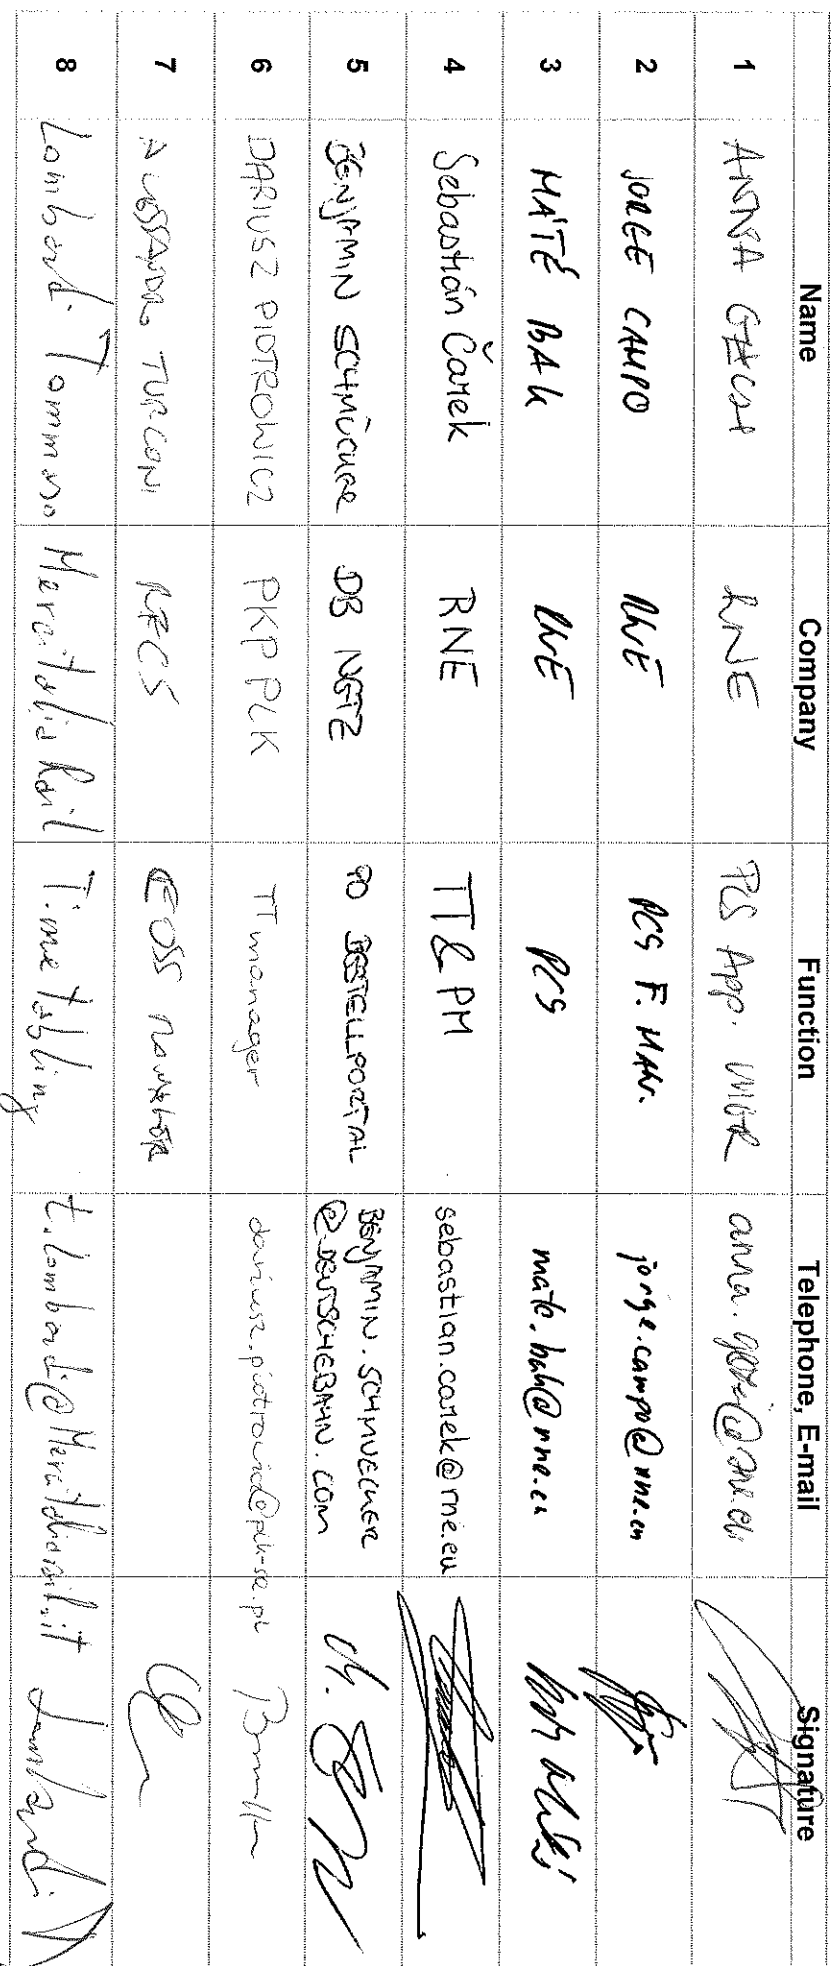 Name Company Function Telephone, E-mail Signature
1 ANNA RNE PCS App. MGR
2 JORGE CAMPO RNE PCS F. MAN. jorge.campo@rne.eu
3 MÁTÉ BAK RNE PCS mate.bak@rne.eu
4 Sebastián Čarek RNE TT & PM sebastian.carek@rne.eu
5 BENJAMIN SCHMÜCKER DB NETZ PO BESTELLPORTAL BENJAMIN.SCHMUECKER
@DEUTSCHEBAHN.COM
6 DARIUSZ PIOTROWICZ PKP PLK TT manager dariusz.piotrowicz@plk-sa.pl
7 ALESSANDRO TURCONI
8 Lombardi Tommaso Mercitalia Rail Time tabling t.lombardi@Mercitaliarail.it Lombardi T